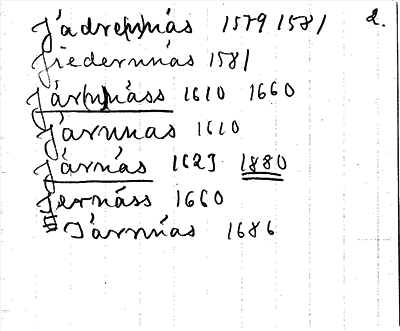 Jädre(n)näs 1579 1581 2.
Jiedernnäs 1581
Jär(n)näss 1610 1660
Järnnas 1610
Järnäs 1623 1880
Jernäss 1660
Järnnäs 1686